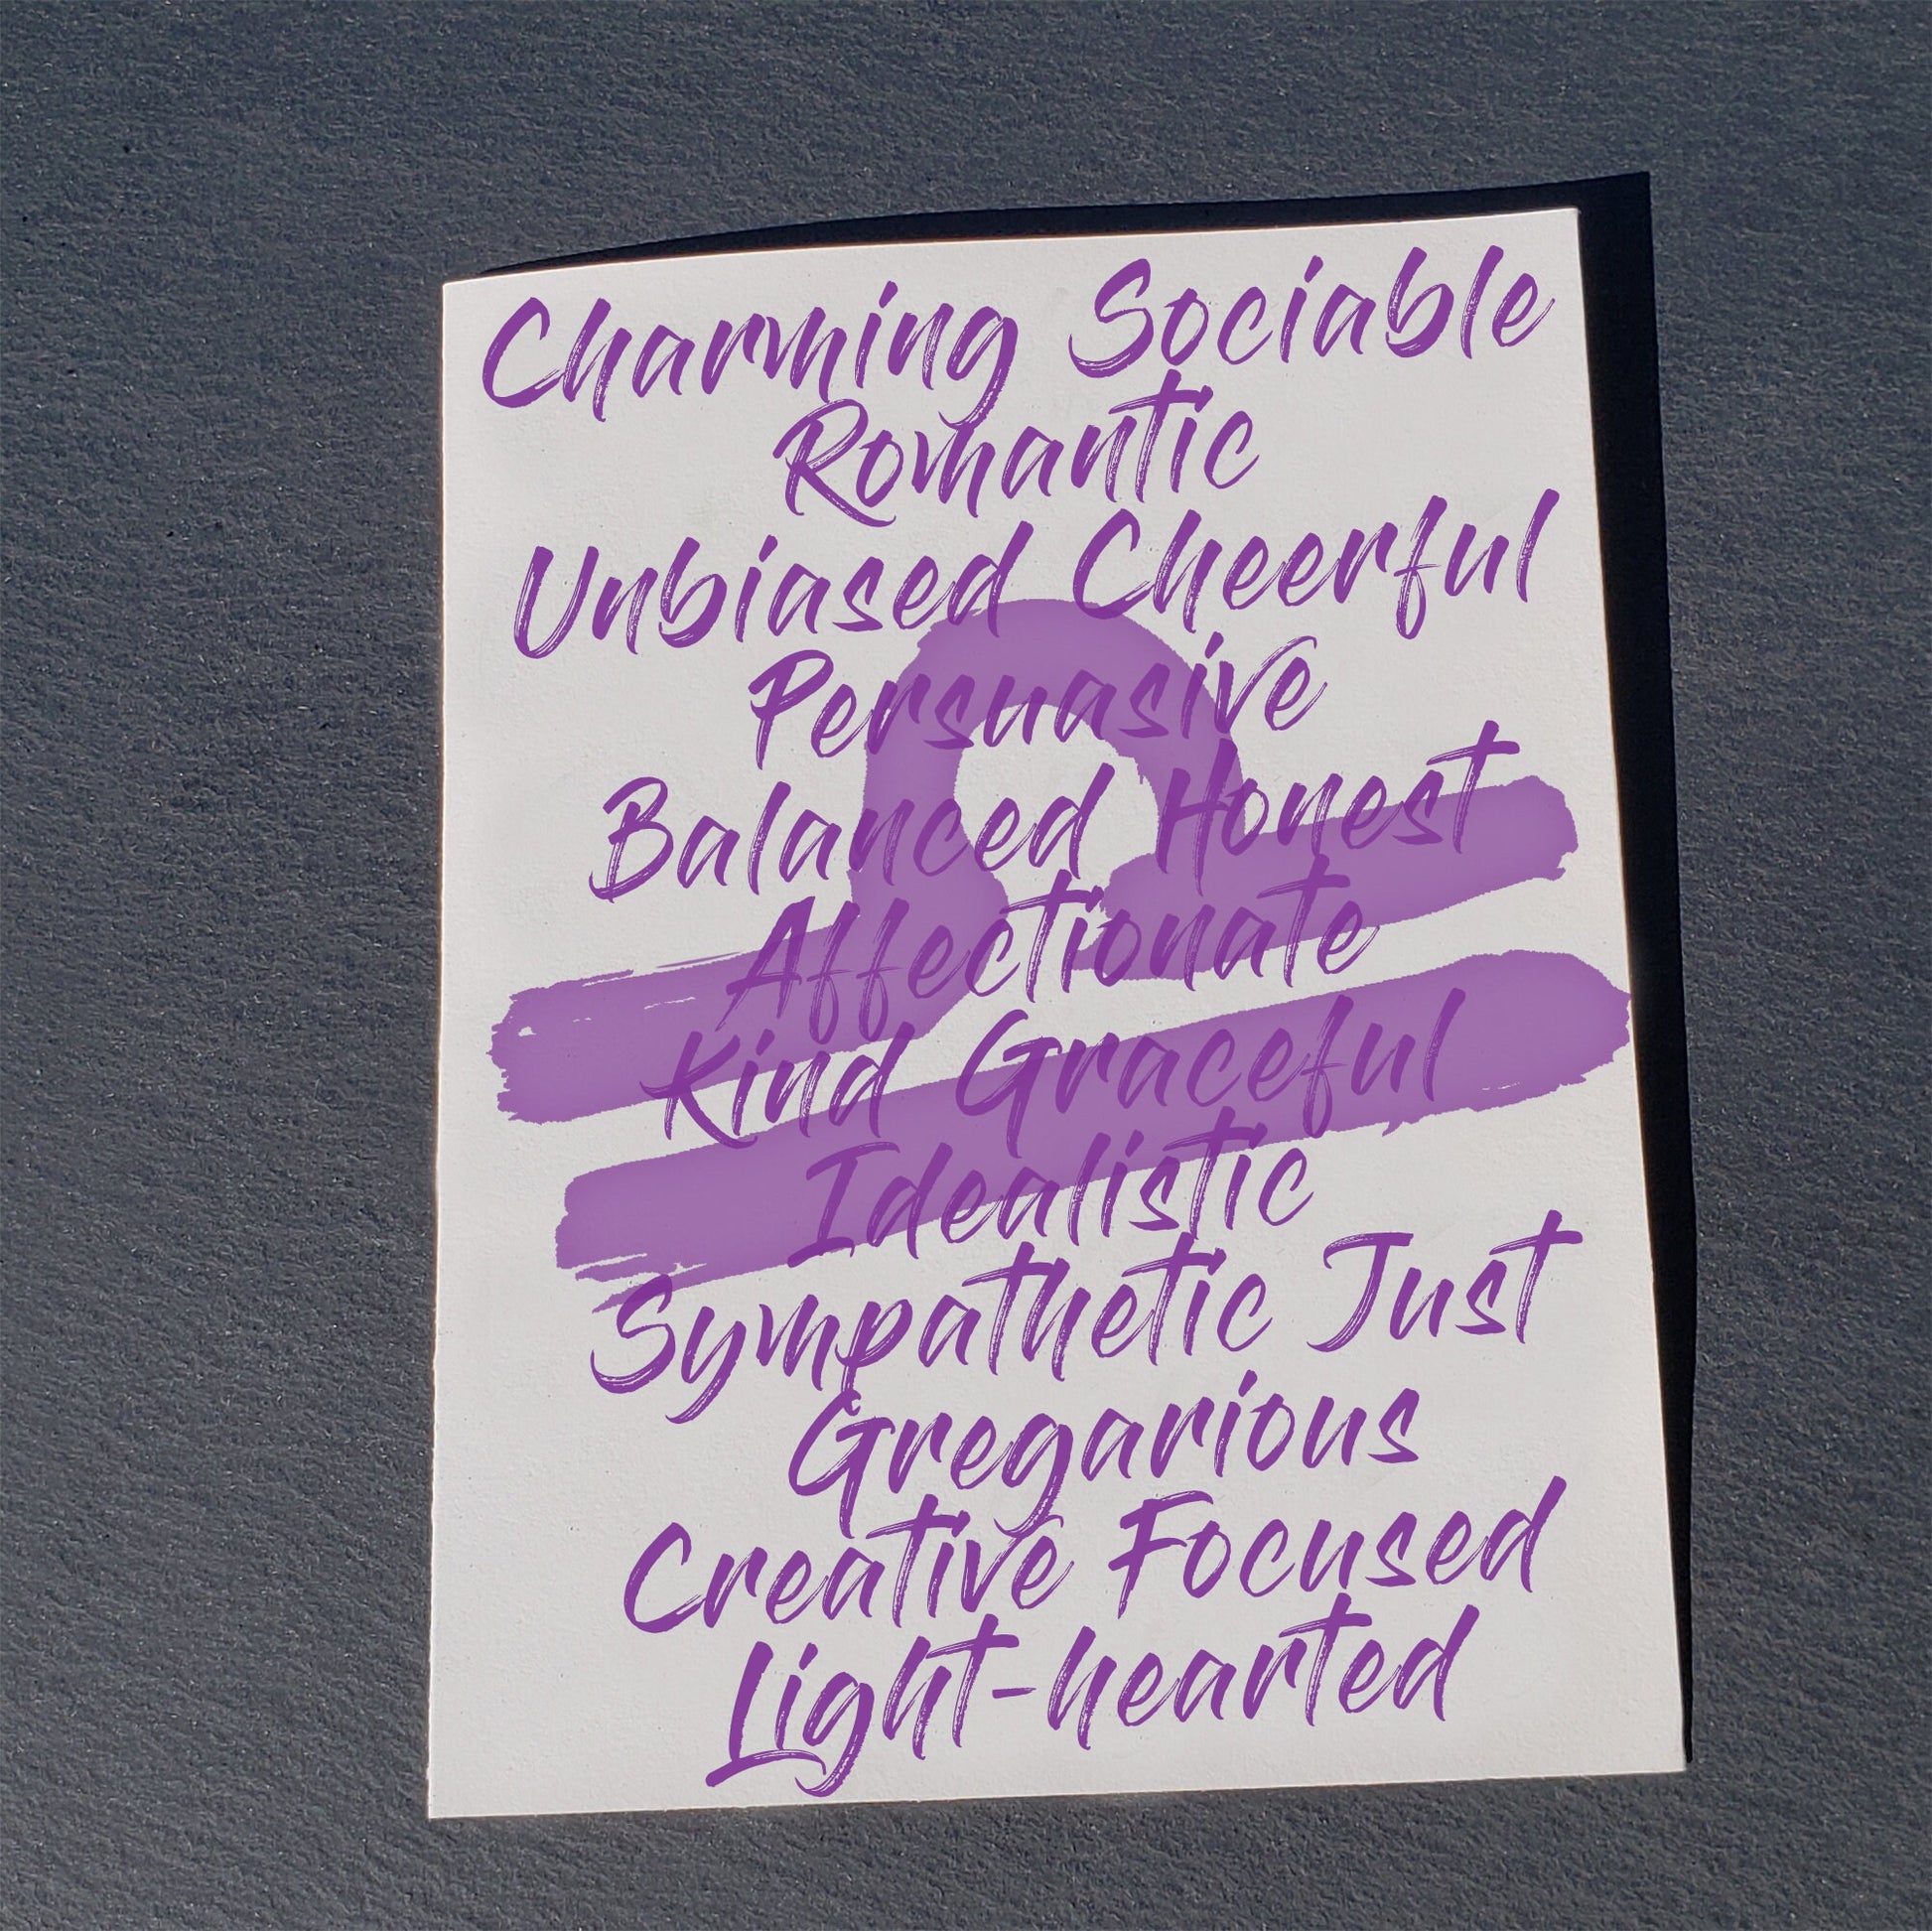 Charming Sociable
Romantic
Unbiased Cheerful
Persuasive
Balanced Honest
Affectionate
Kind Graceful
Idealistic
Sympathetic Just
Gregarious
Creative Focused
Light-hearted